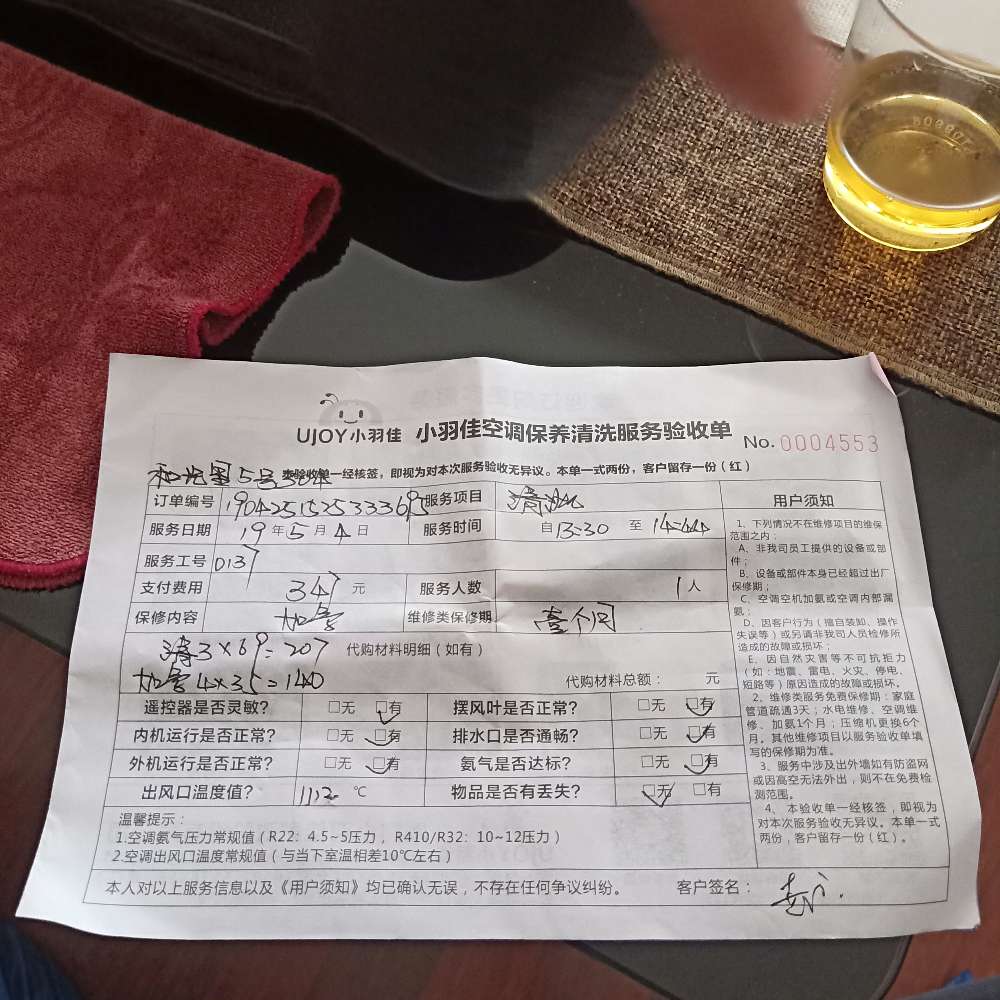 UJOY小羽佳 小羽佳空调保养清洗服务验收单 No.0004553
5号 本验收单一经核签，即视为对本次服务验收无异议。本单一式两份，客户留存一份（红）
订单编号 服务项目 清洗
服务日期 19年5月4日 服务时间 自13:30至14:44
服务工号 0137
支付费用 347元 服务人数 1人
保修内容 加雪 维修类保修期 壹个月
清3×69=207 代购材料明细（如有）
加雪4×35=140 代购材料总额： 元
遥控器是否灵敏？ □无 □有 摆风叶是否正常？ □无 □有
内机运行是否正常？ □无 □有 排水口是否通畅？ □无 □有
外机运行是否正常？ □无 □有 氨气是否达标？ □无 □有
出风口温度值？ 11,12 ℃ 物品是否有丢失？ □无 □有
温馨提示：
1.空调氨气压力常规值（R22：4.5~5压力， R410/R32：10~12压力）
2.空调出风口温度常规值（与当下室温相差10℃左右）
本人对以上服务信息以及《用户须知》均已确认无误，不存在任何争议纠纷。 客户签名：
用户须知
1、下列情况不在维修项目的维保
范围之内：
A、非我司员工提供的设备或部
件；
B、设备或部件本身已经超过出厂
保修期；
C、空调空机加氨或空调内部漏
氨；
D、因客户行为（擅自装卸、操作
失误等）或另请非我司人员检修所
造成的故障或损坏；
E、因自然灾害等不可抗拒力
（如：地震、雷电、火灾、停电、
短路等）原因造成的故障或损坏。
2、维修类服务免费保修期：家庭
管道疏通3天；水电维修、空调维
修、加氨1个月；压缩机更换6个
月。其他维修项目以服务验收单填
写的保修期为准。
3、服务中涉及出外墙如有防盗网
或因高空无法外出，则不在免费检
测范围。
4、本验收单一经核签，即视为
对本次服务验收无异议。本单一式
两份，客户留存一份（红）。